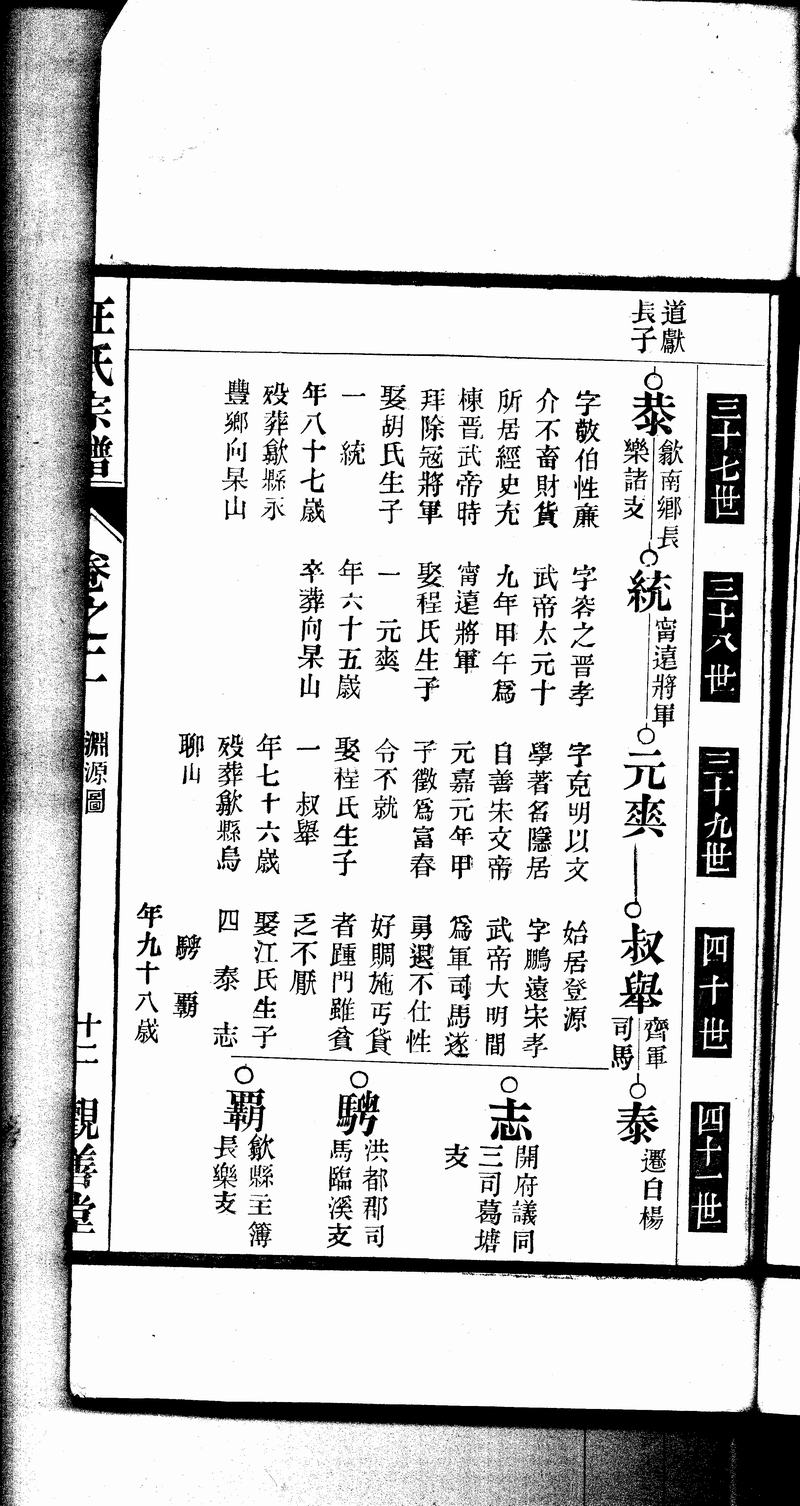 三十七世
三十八世
三十九世
四十世
四十一世
道獻
長子
恭
歙南鄉長
樂諸支
字敬伯性廉
介不畜財貨
所居經史充
棟晋武帝時
拜除冦將軍
娶胡氏生子
一 統
年八十七歲
歿葬歙縣永
豐鄉向杲山
統
甯遠將軍
字容之晋孝
武帝太元十
九年甲午爲
甯遠將軍
娶程氏生子
一 元爽
年六十五歲
卒葬向杲山
元爽
字克明以文
學著名隱居
自善朱文帝
元嘉元年甲
子徵爲富春
令不就
娶桯氏生子
一 叔舉
年七十六歲
歿葬歙縣烏
聊山
叔舉
齊軍
司馬
始居登源
字鵬遠宋孝
武帝大明間
爲軍司馬遂
勇退不仕性
好賙施丐貸
者踵門雖貧
乏不厭
娶江氏生子
四 泰 志
騁 覇
年九十八歲
泰
遷白楊
志
開府議同
三司葛塘
支
騁
洪都郡司
馬臨溪支
覇
歙縣主簿
長樂支
汪氏宗譜
卷之二
淵源圖
十二
觀善堂